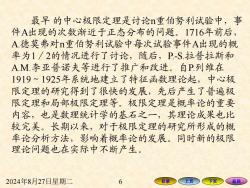 最早 的中心极限定理是讨论n重伯努利试验中，事
件A出现的次数渐近于正态分布的问题。1716年前后，
A.德莫弗对n重伯努利试验中每次试验事件A出现的概
率为1/2的情况进行了讨论，随后，P-S.拉普拉斯和
A.M.李亚普诺夫等进行了推广和改进。自P.列维在
1919～1925年系统地建立了特征函数理论起，中心极
限定理的研究得到了很快的发展，先后产生了普遍极
限定理和局部极限定理等。极限定理是概率论的重要
内容，也是数理统计学的基石之一，其理论成果也比
较完美。长期以来，对于极限定理的研究所形成的概
率论分析方法，影响着概率论的发展。同时新的极限
理论问题也在实际中不断产生。
2024年8月27日星期二
6